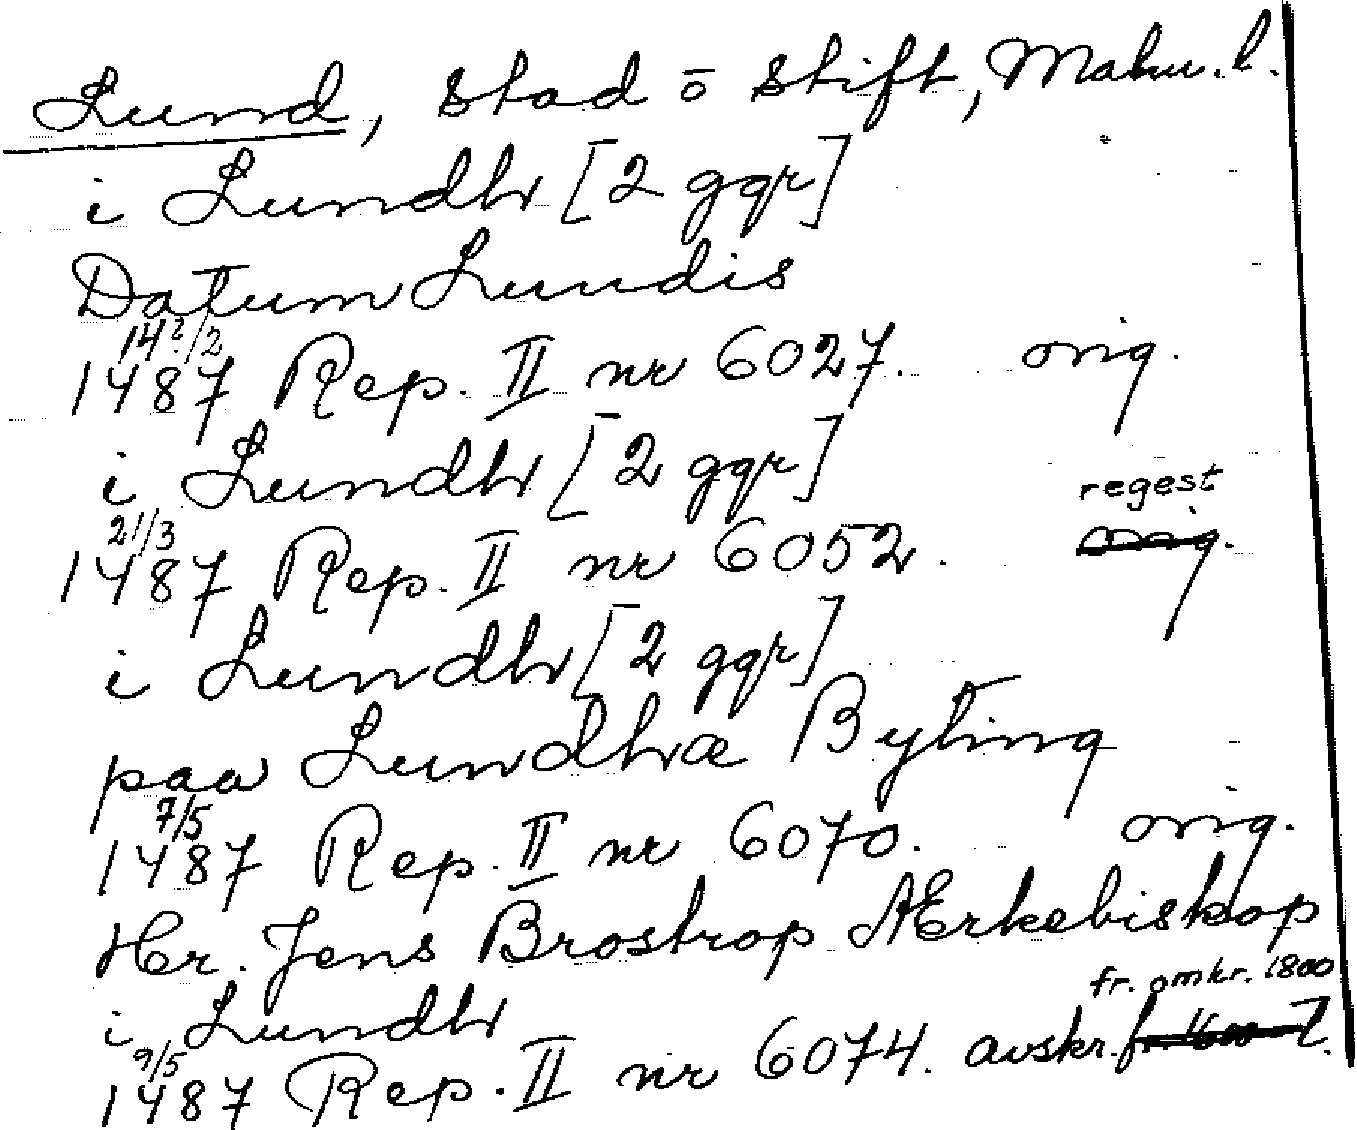 Lund, stad o stift, Malm. l.
i Lundh [2 ggr]
Datum Lundis
14 2/2
1487 Rep. II nr 6027. orig.
i Lundh [2 ggr]
regest
21/3
1487 Rep. II nr 6052. orig.
i Lundh [2 ggr]
paa Lundhæ Byting
7/5
1487 Rep. II nr 6070. orig.
Hr. Jens Brostrop Ærkebiskop
i Lundh fr. omkr. 1800
9/5
1487 Rep. II nr 6074. avskr. fr. 1600 t.